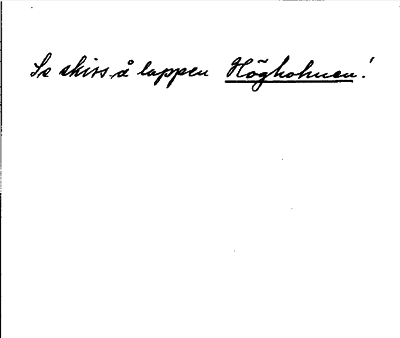 Se skiss å lappen Högholmen!